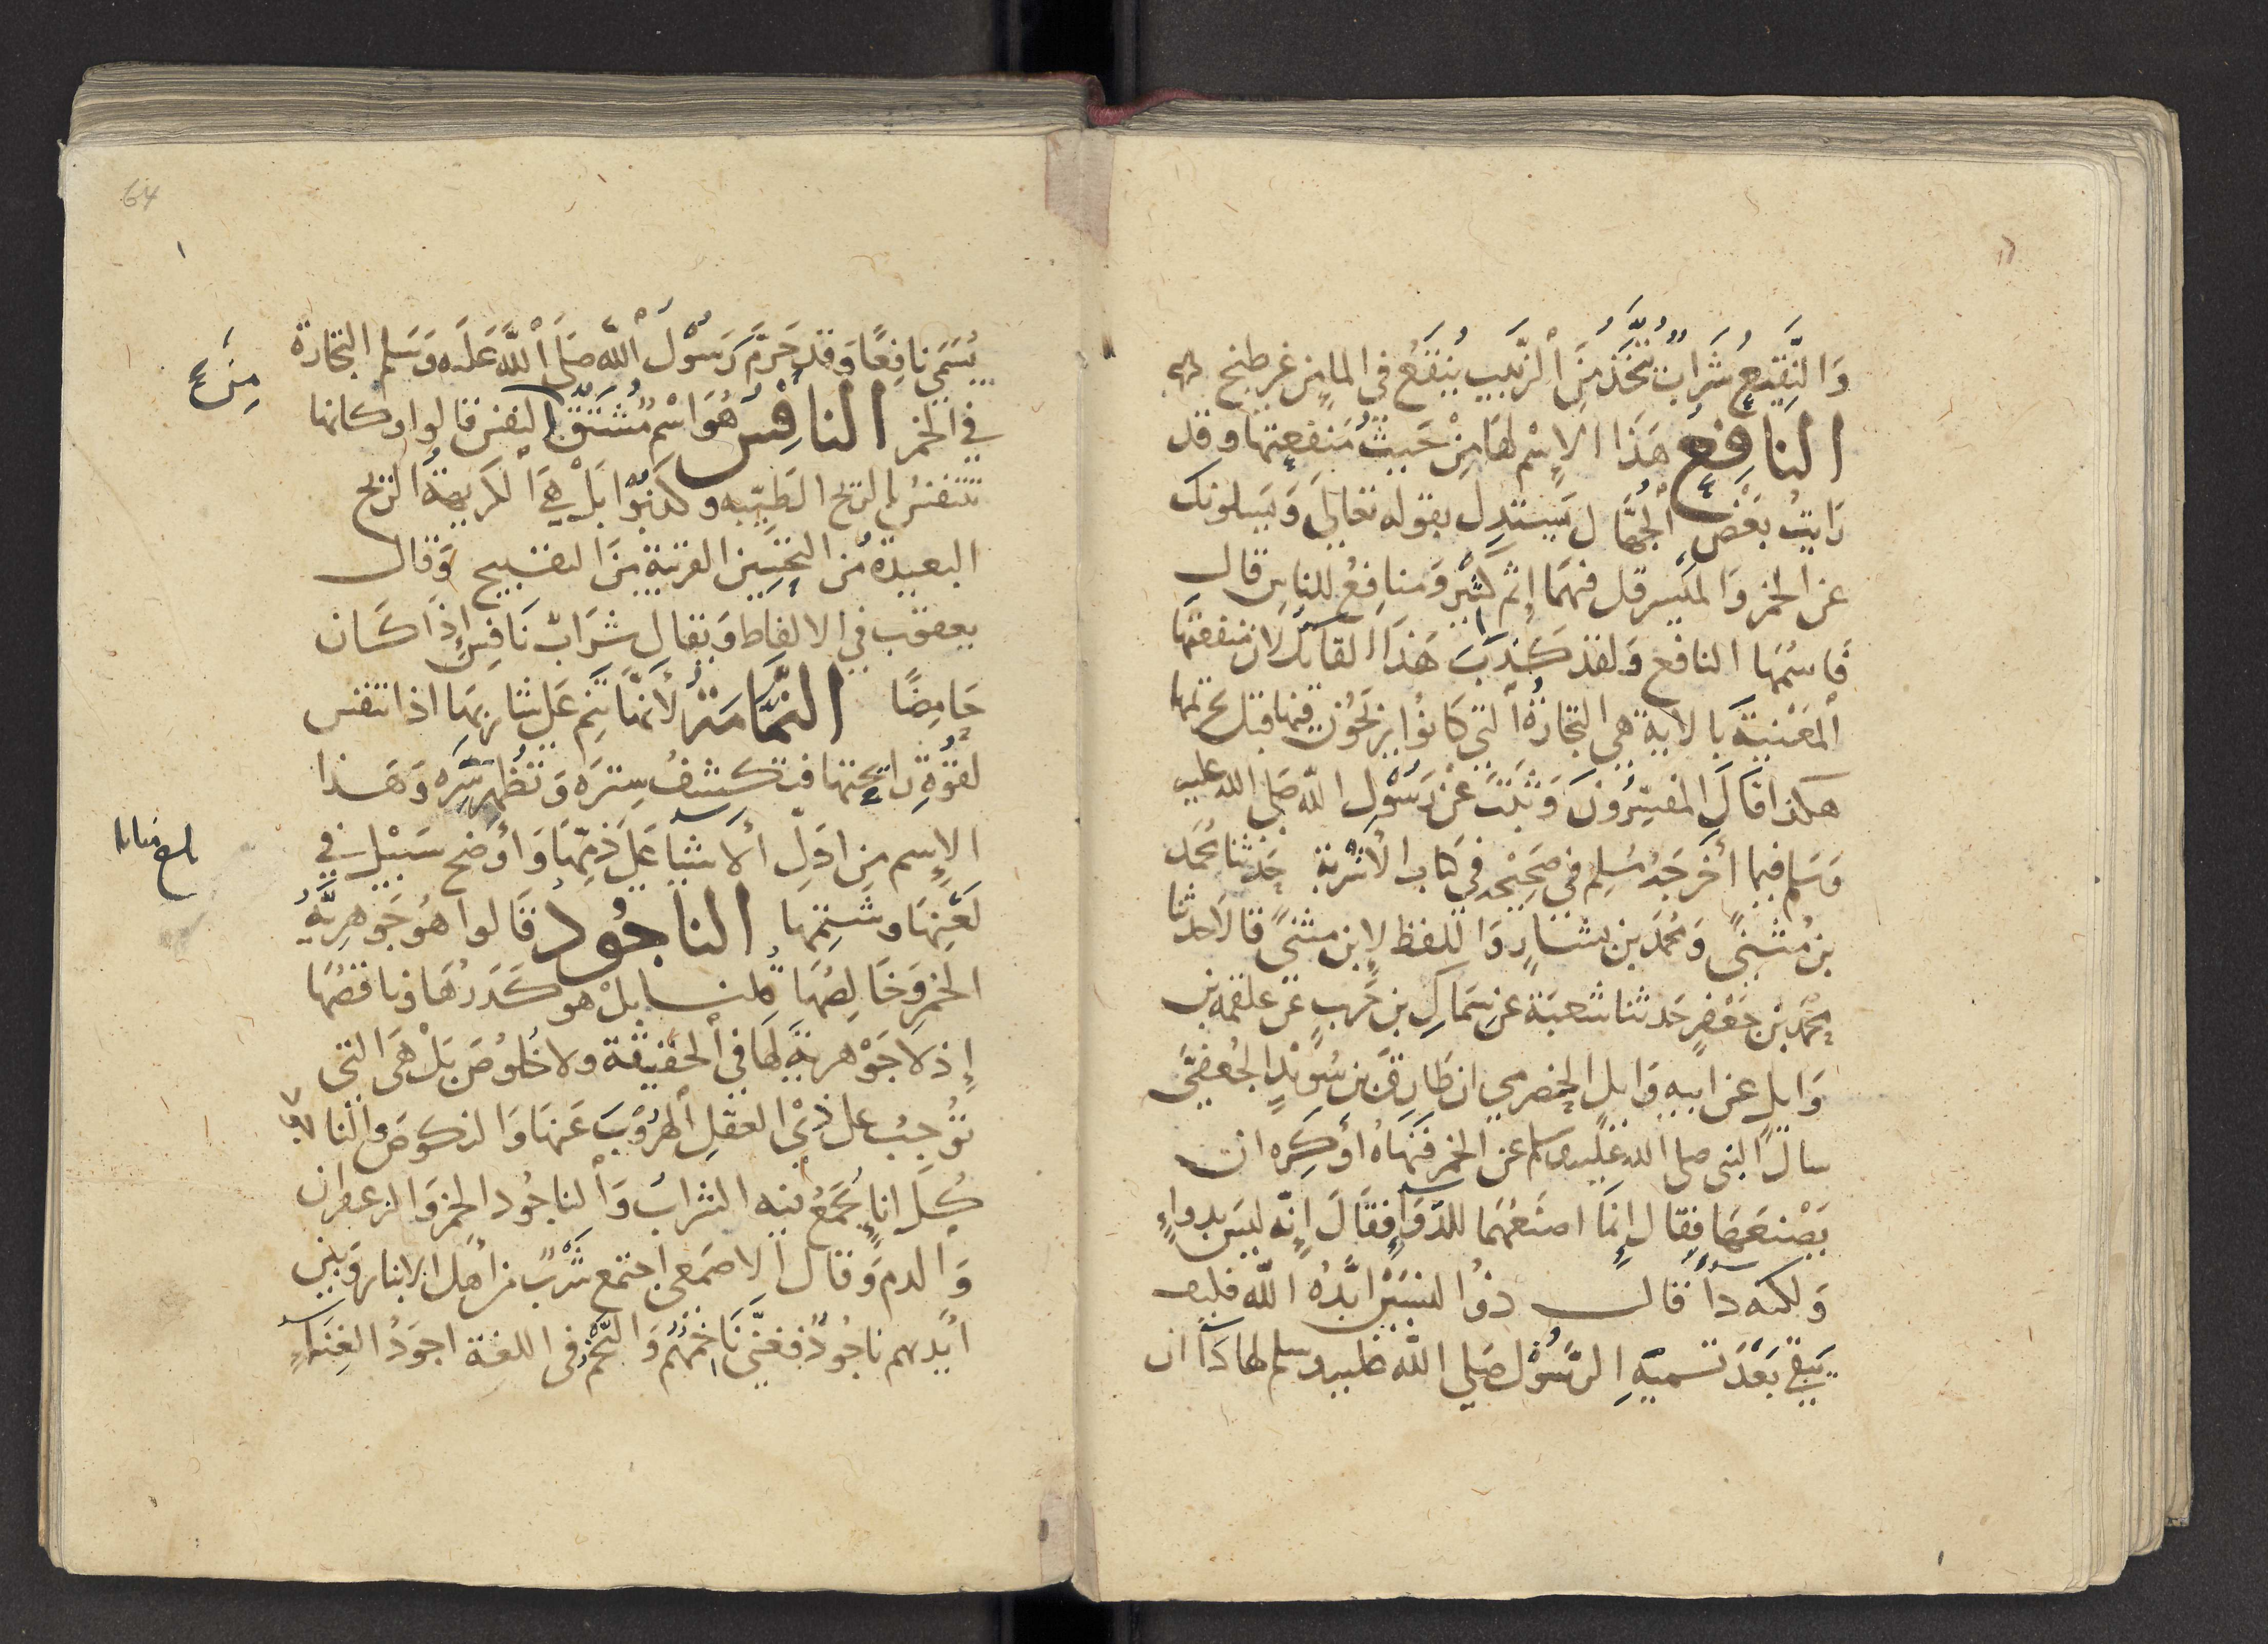 وَالنَّقِيعُ شَرَابٌ يُتَّخَذُ مِنَ الزَّبِيبِ يُنقَعُ فى الماءِ من غير طبخ
النافِعُ هَذَا الإِسْم لها مِنْ حَيثُ مَنفَعِتها وقد
رَايتُ بَعْضَ الجُهَّالِ يَستدِل بقوله تعالىَ وَيَسلونك
عن الخمر وَالميْسر قل فيهمَا إِثم كبْير وَمنافِعُ للناسِ قال
فاسمُها النافع وَلقد كَذَبَ هَذَا القايلُ لان منفعتها
المَعْنيَّة بالاية هى التجارةُ التي كانوُا يَربَحُون فيها قبل تحريمها
هكذا قالَ المفسِّرُونَ وَثَبَتَ عَنْ رَسُوْلِ اللّه صَلى الله عليه
وَسَلم فيما أخرَجَهُ مُسْلِم فى صَحِيْحِه فى كتاب الأشربة حَدثنا محمد
بن مُثنىً وَمُحمَّد بن بشارٍ وَاللفظ لإبن مثنىً قالا حدثنا
محمَّد بْن جَعْفرٍ حَدثنا شعبَة عن سِمَاكِ بن حَربٍ عَن علقمه بن
وَايلٍ عن ابيهِ وَايلٍ الحضرمي ان طارِقَ بنَ سُوَيْدٍ الجُعفىَّ
سالَ النبى صلى الله عليه وسلم عن الخمر فَنهَاهُ أوْ كَرِه ان
يَصْنعَهَا فقال إِنمَا اصنَعُهَا للدّوَاءِ فقَالَ إِنّه ليسَ بدواءٍ
وَلكنه دآءٌ قال ذوُ النسَبَيْن أيَّدُه اللّه فليف
يَبقى بَعْدَ تسميَةِ الرَّسُوْل صَلي اللّه عليه وسلم لها دَآءً ان
64
يُسَمى نافِعًا وَقد حَرَّم رَسُوْلُ اللّه صَلَى اللَّه عَليْه وَسَلم التجارة
فى الخمر النافِسُ هُوَ اسْمٌ مُشتَقٌ النفس قالوا وكانها
مِنَ
تتنفسُ بالريح الطَيّبه وكذبُوا بَلْ هيَ الكَريهةُ الريح
البعيدةُ من التحْسِين القريبة مِنَ التقبيح وَقال
يعقوب في الالفاظ وَيقال شرَابٌ نَافِسٌ إذَا كَان
حَامِضًا النَّمَّامَةُ لأَنهَّا تَنِم عَلى شاربهَا اذا تنفس
لقوَّةِ رايحتها فتكشفُ سِترَه وَتُظهرُ سِرَّه وَهَذا
الإِسم مِن ادَلِّ الأشياءِ عَلى ذمِّهَا وَأوْضح سَبيْل في
لَعْنِهَا وشَتمِهَا الناجُود قالوا هُوَ جَوهرِيَّةُ
الخمرِ وَخالِصُهَا قلنا بلْ هو كَدَرُهَا وناقصُهَا
إِذ لا جَوْهريَّة لها فى الحَقيقة ولا خُلوُصَ بَلْ هىَ التى
توُجِبُ على ذِيْ العقلِ الهرُوبَ عَنهَا وَالنكوصَ والناجود
كُلَ اناءٍ يُجمَعُ فيه الشراب وَالناجُود الخمر وَالزعفران
وَالدم وَقال الاصمَعى اجتمع شَرْبٌ من أهل الانبار وَبين
ايْديهم ناجُودٌ فغنَّى ناخمُهُم وَالنَّخْمُ فى اللغة اجوَدُ الغِنَاءِ